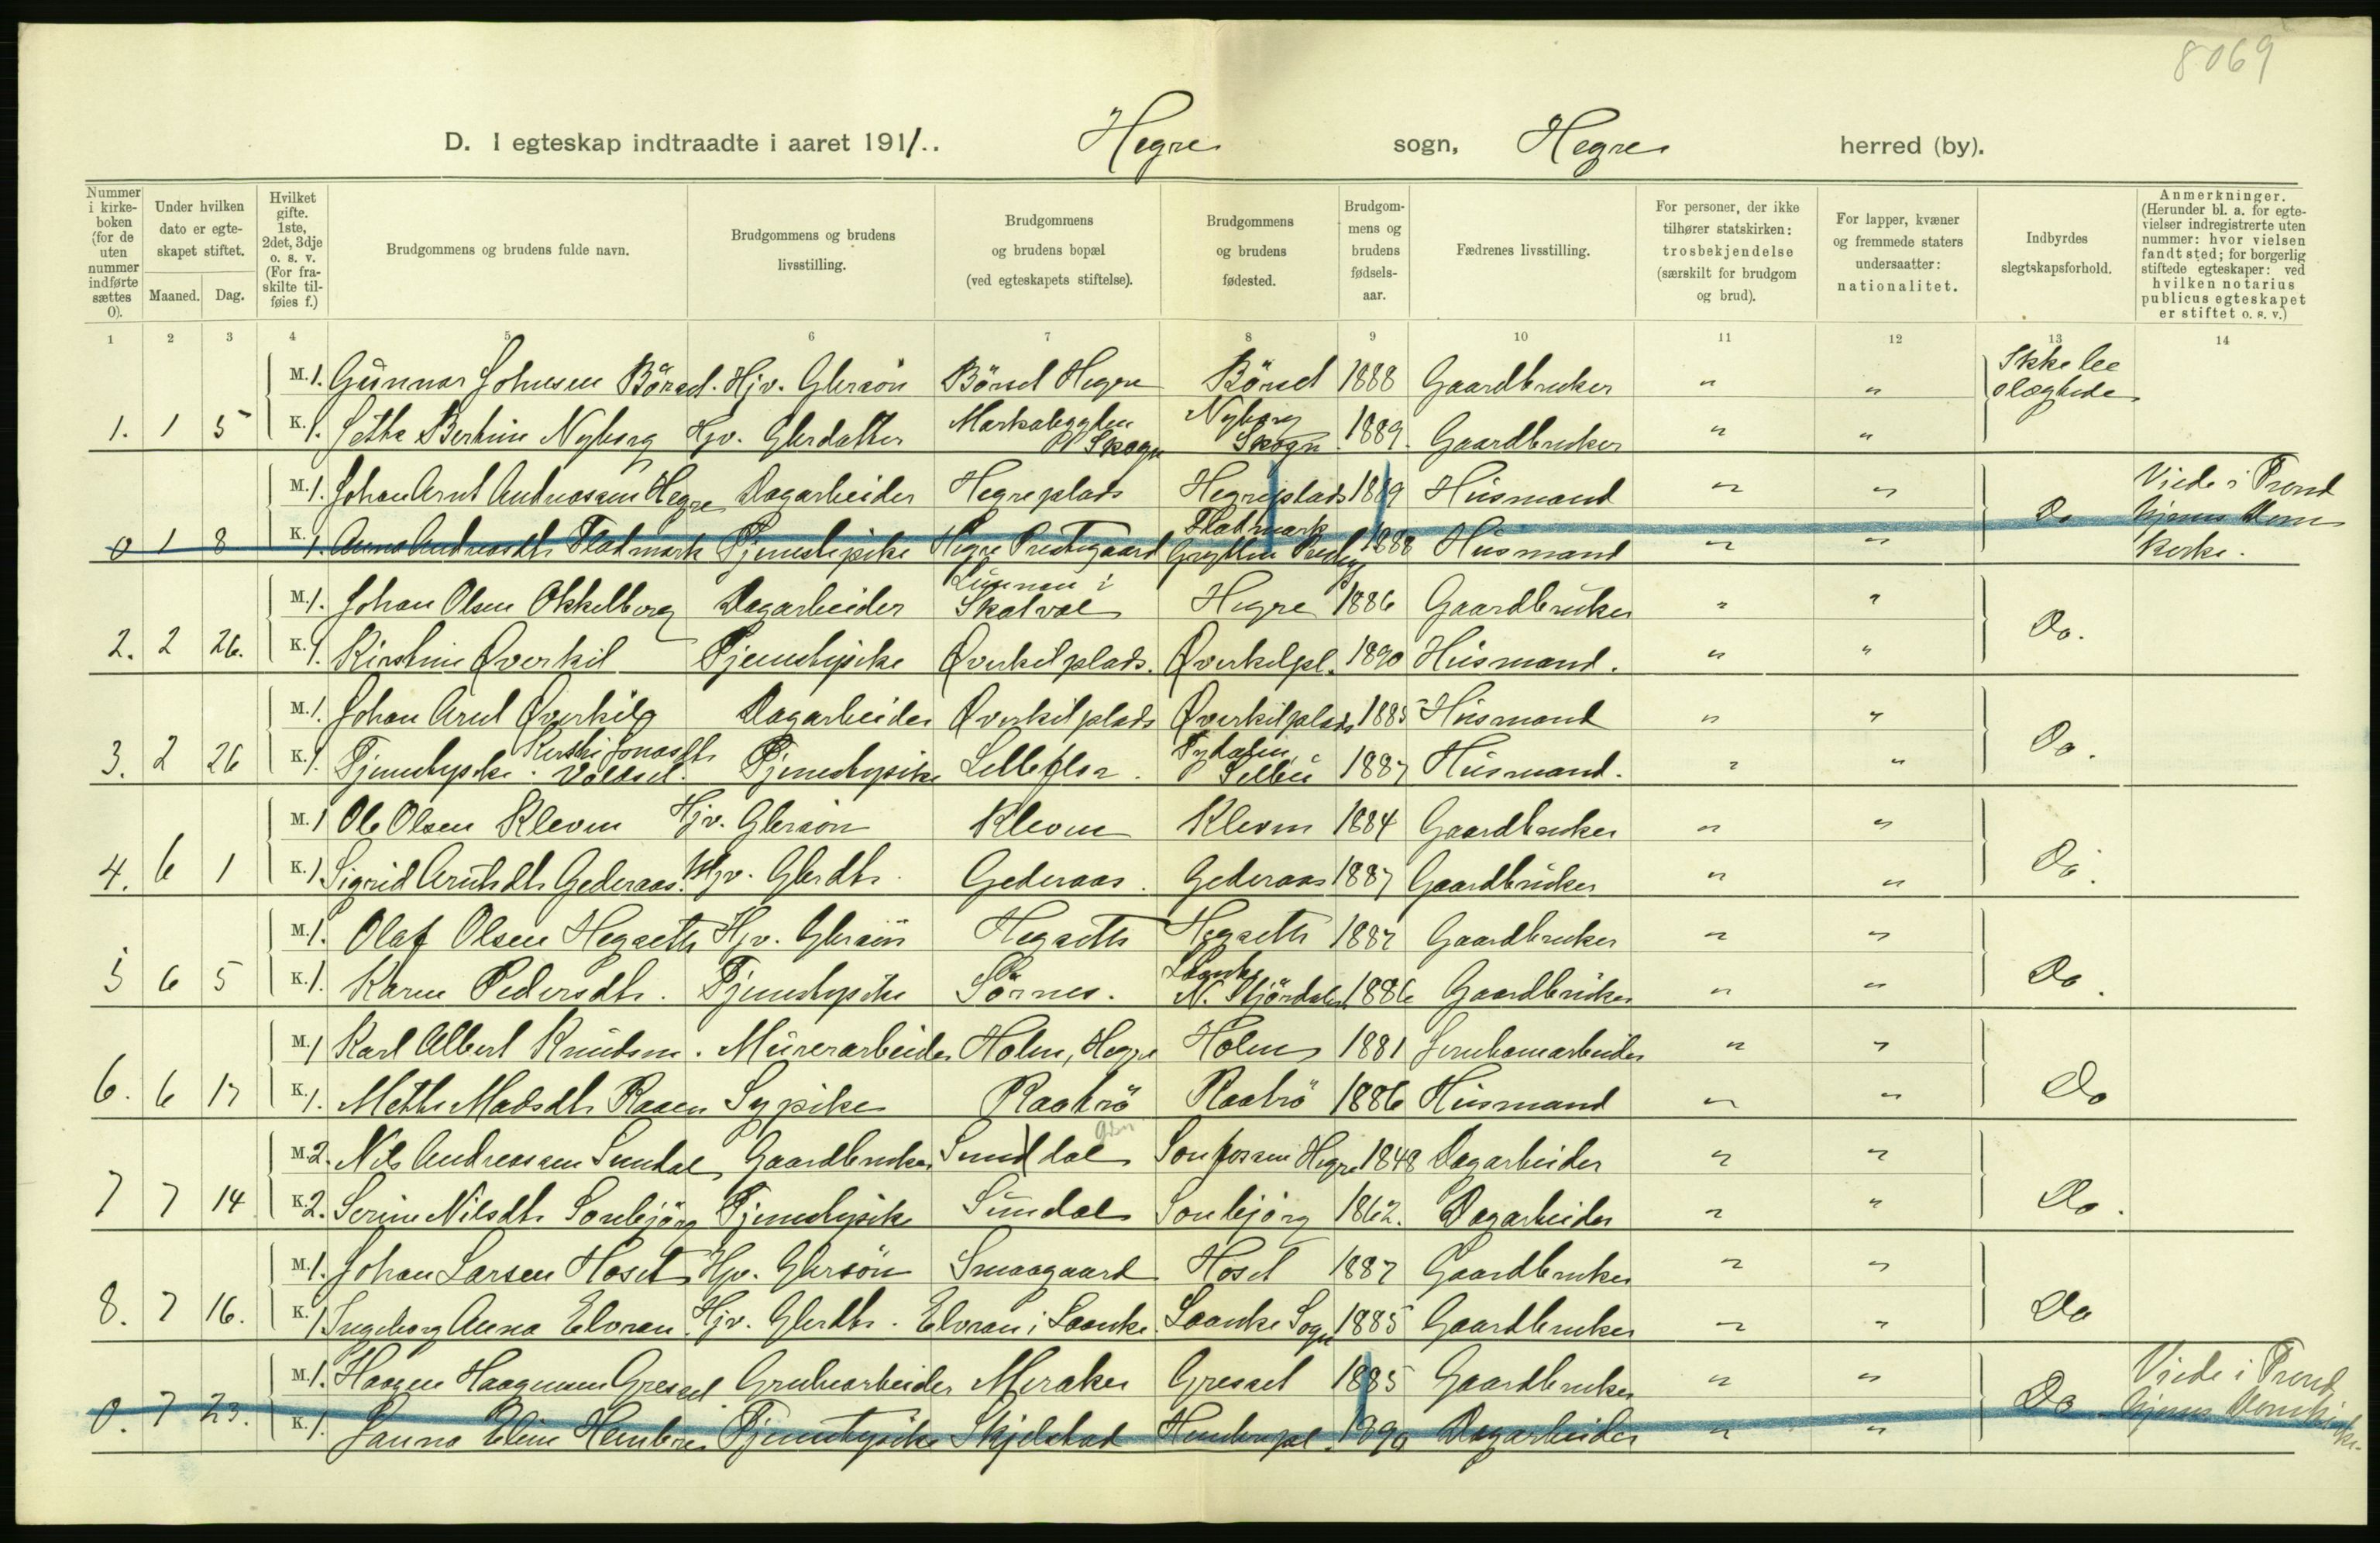 8069
D. I egteskap indtraadte i aaret 1911.. Hegre sogn, Hegre herred (by).
Nummer i kirke-boken (for de uten nummer indførte sættes 0).
Under hvilken dato er egte-skapet stiftet.
Maaned. Dag.
Hvilket gifte. 1ste, 2det, 3dje o. s. v. (For fra-skilte til-føies f.)
Brudgommens og brudens fulde navn.
Brudgommens og brudens livsstilling.
Brudgommens og brudens bopæl (ved egteskapets stiftelse).
Brudgommens og brudens fødested.
Brudgom-mens og brudens fødsels-aar.
Fædrenes livsstilling.
For personer, der ikke tilhører statskirken: trosbekjendelse (særskilt for brudgom og brud).
For lapper, kvæner og fremmede staters undersaatter: nationalitet.
Indbyrdes slegtskapsforhold.
Anmerkninger. (Herunder bl. a. for egte-vielser indregistrerte uten nummer: hvor vielsen fandt sted; for borgerlig stiftede egteskaper: ved hvilken notarius publicus egteskapet er stiftet o. s. v.)
1 2 3 4 5 6 7 8 9 10 11 12 13 14
M. 1. Gunnar Johnsen Börset. Hjv. Gbrsön Börset Hegre Börset 1888 Gaardbruker " " Ikke be slægtede
1. 1 5 K. 1. Jette Bertine Nyborg Hjv. Gbrdatter Markabygden Skogn Nyborg Skogn 1889. Gaardbruker " "
M. 1. Johan Arnt Andreassen Hegre Dagarbeider Hegreplads Hegreplads 1889 Husmand " " Do Viede i Trond
0 1 8 K. 1. Anna Andreasdtr Flatmark Tjenestepike Hegre Prestegaard Flatmark 1888 Husmand " " hjems Dom
kirke.
M. 1. Johan Olsen Okkelberg Dagarbeider Lunnan i Skatval Hegre 1886 Gaardbruker " " Do.
2. 2 26. K. 1. Kirstine Øverkil Tjenestepike Øverkilplads. Øverkilpl. 1890 Husmand. " "
M. 1. Johan Arnt Øverkil Dagarbeider Øverkilplads Øverkilplads 1885 Husmand " " Do.
3. 2 26 K. 1. Tjenestepike. Kirsti Jonasdtr Tjenestepike Lilleflor. Tydalen Selbu 1887 Husmand. " "
M. 1 Ole Olsen Kleven Hjv. Gbrsön Kleven Kleven 1884 Gaardbruker " " Do.
4. 6 1 K. 1. Sigrid Arntsdtr Gederaas. Hjv. Gbrdtr. Gederaas. Gederaas 1887 Gaardbruker " "
M. 1. Olaf Olsen Hegseth Hjv. Gbrsön Hegseth Hegseth 1887 Gaardbruker " " Do.
5 6 5 K. 1. Karen Pedersdtr. Tjenestepike Sörnes. Laanke N. Stjördalen 1886 Gaardbruker " "
M. 1 Karl Albert Knudsen. Murerarbeider Holen, Hegre Holen 1881 Jernbanearbeider " " Do
6. 6 17 K. 1. Mette Madsdtr Raaen Sypike Raabrö Raabrö 1886 Husmand " "
M. 2. Nils Andreassen Sundal Gaardbruker Sunddal Hegre 1848 Dagarbeider " " Do.
7 7 14 K. 2. Serine Nilsdtr Sonbjörg Tjenestepike Sundal Sonbjörg 1862. Dagarbeider " "
M. 1. Johan Larsen Hoset Hjv. Gbrsön Smaagaard Hoset 1887 Gaardbruker " " Do
8. 7 16. K. 1 Ingeborg Anna Elvran Hjv. Gbrdtr. Elvran i Laanke. Laanke Sogn 1885 Gaardbruker " "
M. 1. Haagen Haagensen Gresset Grubearbeider Meraker Gresset 1885 Gaardbruker " " Do Viede i Trond
0. 7 23. K. 1. Janna Eline Hembre Tjenestepike Skjelstad Hembrepl. 1890 Dagarbeider " " hjems Domkirke.